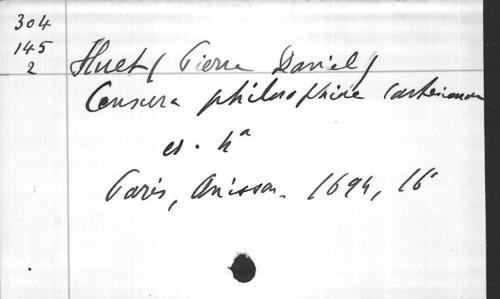 304
145
2
Huet (Pierre Daniel)
Censura philosophiae cartesianae
ed. 4a
Paris, Anisson. 1694, 16°